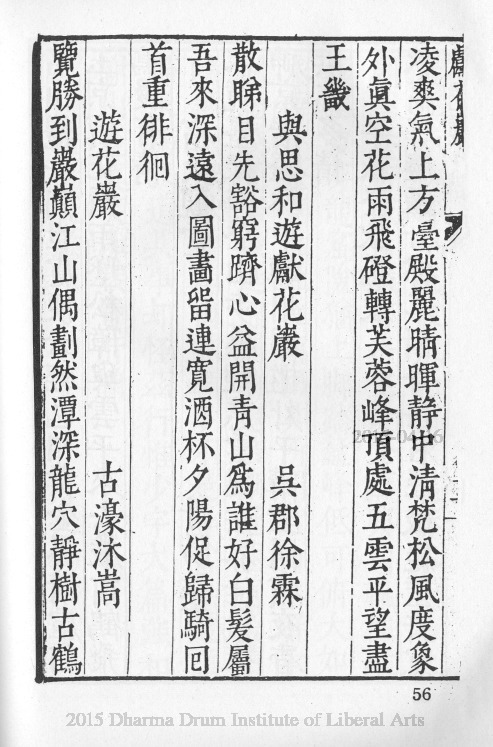 獻花巖
凌爽氣上方臺殿麗晴暉静中清梵松風度象
外眞空花雨飛磴轉芙蓉峰頂處五雲平望盡
王畿
與思和遊獻花巖 吳郡徐霖
散睇目先豁窮躋心益開靑山爲誰好白髮屬
吾來深遠入圖畫留連寬酒杯夕陽促歸騎回
首重徘徊
遊花巖 古濠沐嵩
覽勝到巖巔江山偶劃然潭深龍穴靜樹古鶴
56
2015 Dharma Drum Institute of Liberal Arts